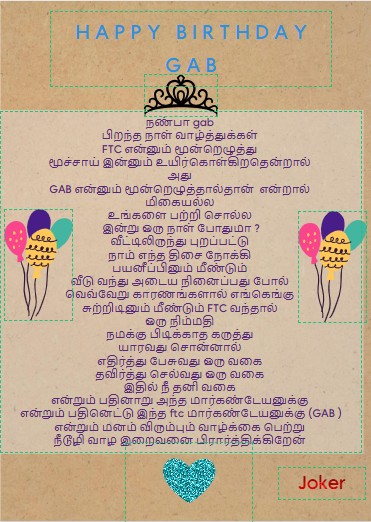 HAPPY BIRTHDAY
GAB
நண்பா gab
பிறந்த நாள் வாழ்த்துக்கள்
FTC என்னும் மூன்றெழுத்து
மூச்சாய் இன்னும் உயிர்கொள்கிறதென்றால்
அது
GAB என்னும் மூன்றெழுத்தால்தான் என்றால்
மிகையல்ல
உங்களை பற்றி சொல்ல
இன்று ஒரு நாள் போதுமா ?
வீட்டிலிருந்து புறப்பட்டு
நாம் எந்த திசை நோக்கி
பயனீப்பினும் மீண்டும்
வீடு வந்து அடைய நினைப்பது போல்
வெவ்வேறு காரணங்களால் எங்கெங்கு
சுற்றிடினும் மீண்டும் FTC வந்தால்
ஒரு நிம்மதி
நமக்கு பிடிக்காத கருத்து
யாரவது சொன்னால்
எதிர்த்து பேசுவது ஒரு வகை
தவிர்த்து செல்வது ஒரு வகை
இதில் நீ தனி வகை
என்றும் பதினாறு அந்த மார்கண்டேயனுக்கு
என்றும் பதினெட்டு இந்த ftc மார்கண்டேயனுக்கு (GAB )
என்றும் மனம் விரும்பும் வாழ்க்கை பெற்று
நீடூழி வாழ இறைவனை பிரார்த்திக்கிறேன்
Joker